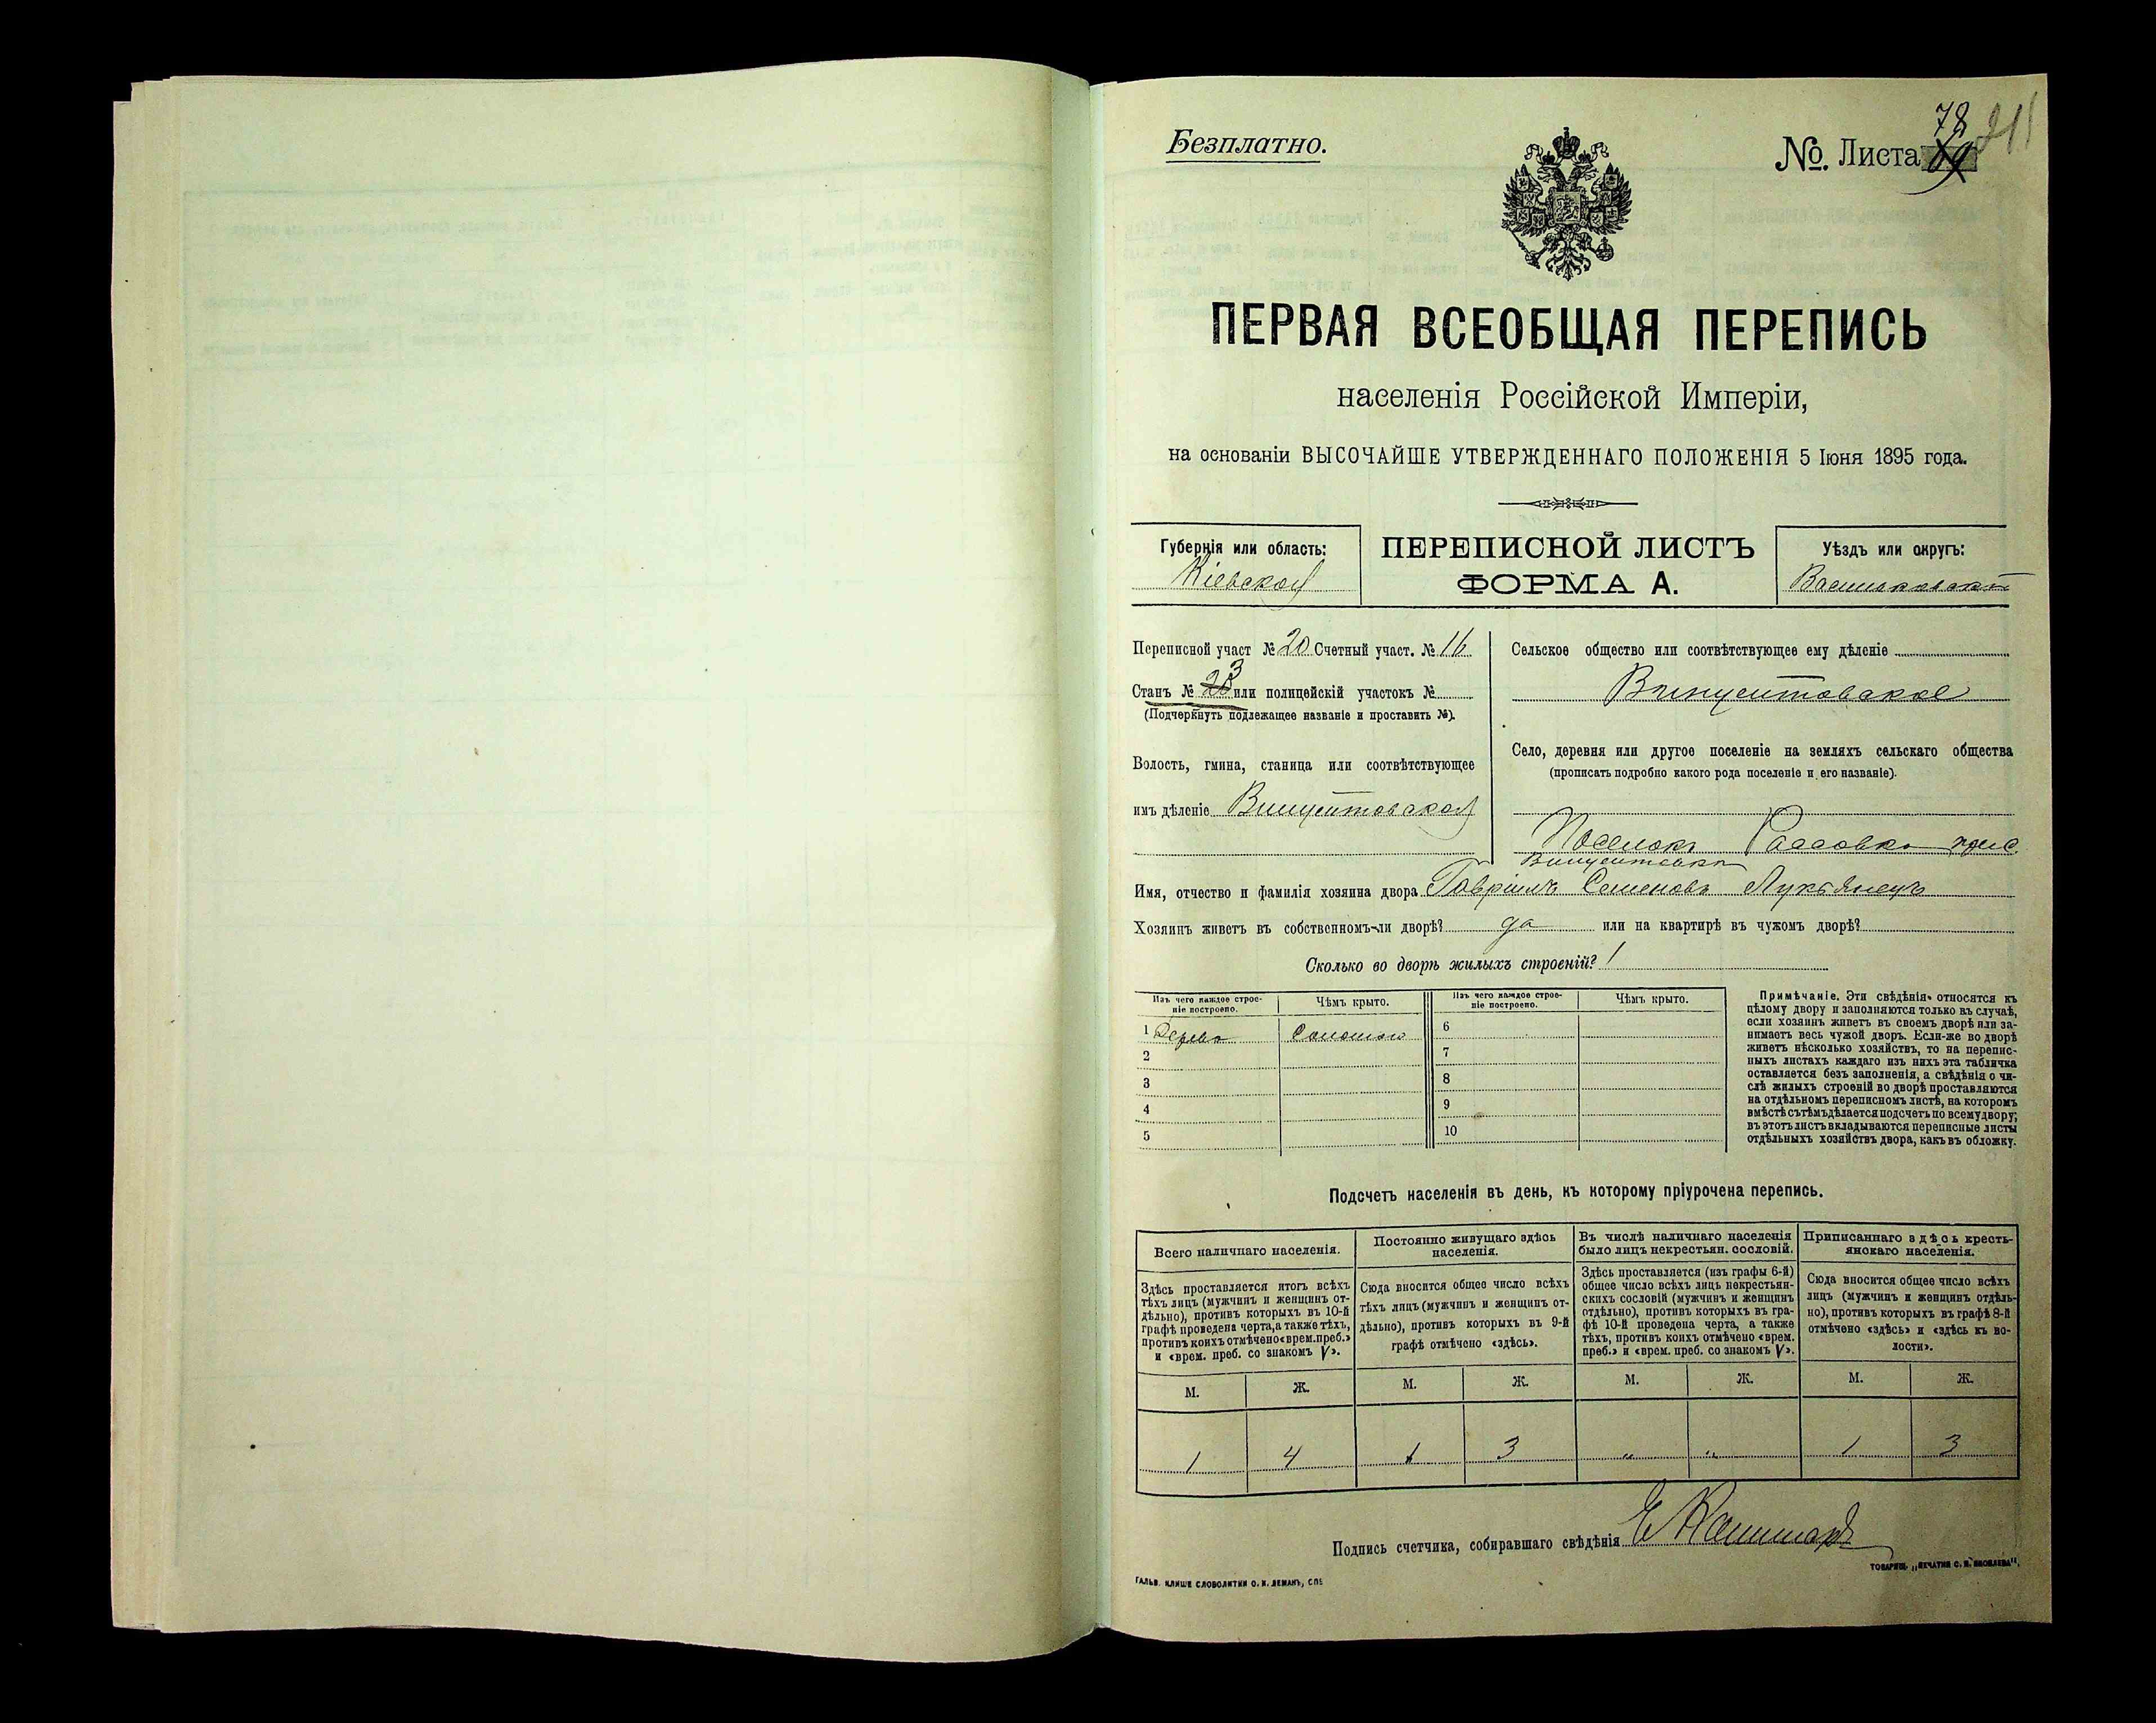 Безплатно.
№. Листа 69 78
211
ПЕРВАЯ ВСЕОБЩАЯ ПЕРЕПИСЬ
населенія Россійской Имперіи,
на основаніи ВЫСОЧАЙШЕ УТВЕРЖДЕННАГО ПОЛОЖЕНІЯ 5 Іюня 1895 года.
Губернія или область:
Кіевская
ПЕРЕПИСНОЙ ЛИСТЪ
ФОРМА А.
Уѣздъ или округъ:
Васильковскій
Переписной участ № 20 Счетный участ. № 16
Станъ № 3 или полицейскій участокъ №
(Подчеркнуть подлежащее названіе и проставить №).
Волость, гмина, станица или соотвѣтствующее
имъ дѣленіе Винцентовская
Сельское общество или соотвѣтствующее ему дѣленіе
Винцентовское
Село, деревня или другое поселеніе на земляхъ сельскаго общества
(прописать подробно какого рода поселеніе и его названіе).
Поселокъ
Имя, отчество и фамилія хозяина двора Гавріилъ Семеновъ Лукьянецъ
Хозяинъ живетъ въ собственномъ-ли дворѣ? да или на квартирѣ въ чужомъ дворѣ?
Сколько во дворѣ жилыхъ строеній? 1
Изъ чего каждое строе-
ніе построено.
Чѣмъ крыто.
Изъ чего каждое строе-
ніе построено.
Чѣмъ крыто.
1 Дерева Соломою 6
2 7
3 8
4 9
5 10
Примѣчаніе. Эти свѣдѣнія относятся къ
цѣлому двору и заполняются только въ случаѣ,
если хозяинъ живетъ въ своемъ дворѣ или за-
нимаетъ весь чужой дворъ. Если-же во дворѣ
живетъ нѣсколько хозяйствъ, то на перепис-
ныхъ листахъ каждаго изъ нихъ эта табличка
оставляется безъ заполненія, а свѣдѣнія о чи-
слѣ жилыхъ строеній во дворѣ проставляются
на отдѣльномъ переписномъ листѣ, на которомъ
вмѣстѣ съ тѣмъ дѣлается подсчетъ по всему двору;
въ этотъ листъ вкладываются переписные листы
отдѣльныхъ хозяйствъ двора, какъ въ обложку.
Подсчетъ населенія въ день, къ которому пріурочена перепись.
Всего наличнаго населенія.
Здѣсь проставляется итогъ всѣхъ
тѣхъ лицъ (мужчинъ и женщинъ от-
дѣльно), противъ которыхъ въ 10-й
графѣ проведена черта, а также тѣхъ,
противъ коихъ отмѣчено «врем. преб.»
и «врем. преб. со знакомъ V».
Постоянно живущаго здѣсь
населенія.
Сюда вносится общее число всѣхъ
тѣхъ лицъ (мужчинъ и женщинъ от-
дѣльно), противъ которыхъ въ 9-й
графѣ отмѣчено «здѣсь».
Въ числѣ наличнаго населенія
было лицъ некрестьян. сословій.
Здѣсь проставляется (изъ графы 6-й)
общее число всѣхъ лицъ некрестьян-
скихъ сословій (мужчинъ и женщинъ
отдѣльно), противъ которыхъ въ гра-
фѣ 10-й проведена черта, а также
тѣхъ, противъ коихъ отмѣчено «врем.
преб.» и «врем. преб. со знакомъ V».
Приписаннаго здѣсь кресть-
янскаго населенія.
Сюда вносится общее число всѣхъ
лицъ (мужчинъ и женщинъ отдѣль-
но), противъ которыхъ въ графѣ 8-й
отмѣчено «здѣсь» и «здѣсь къ во-
лости».
М. Ж. М. Ж. М. Ж. М. Ж.
1 4 1 3 „ „ 1 3
Подпись счетчика, собиравшаго свѣдѣнія
ГАЛЬВ. КЛИШЕ СЛОВОЛИТНИ О. И. ЛЕМАНЪ, СПБ
ТОВАРИЩ. „ПЕЧАТНЯ С. П. ЯКОВЛЕВА".